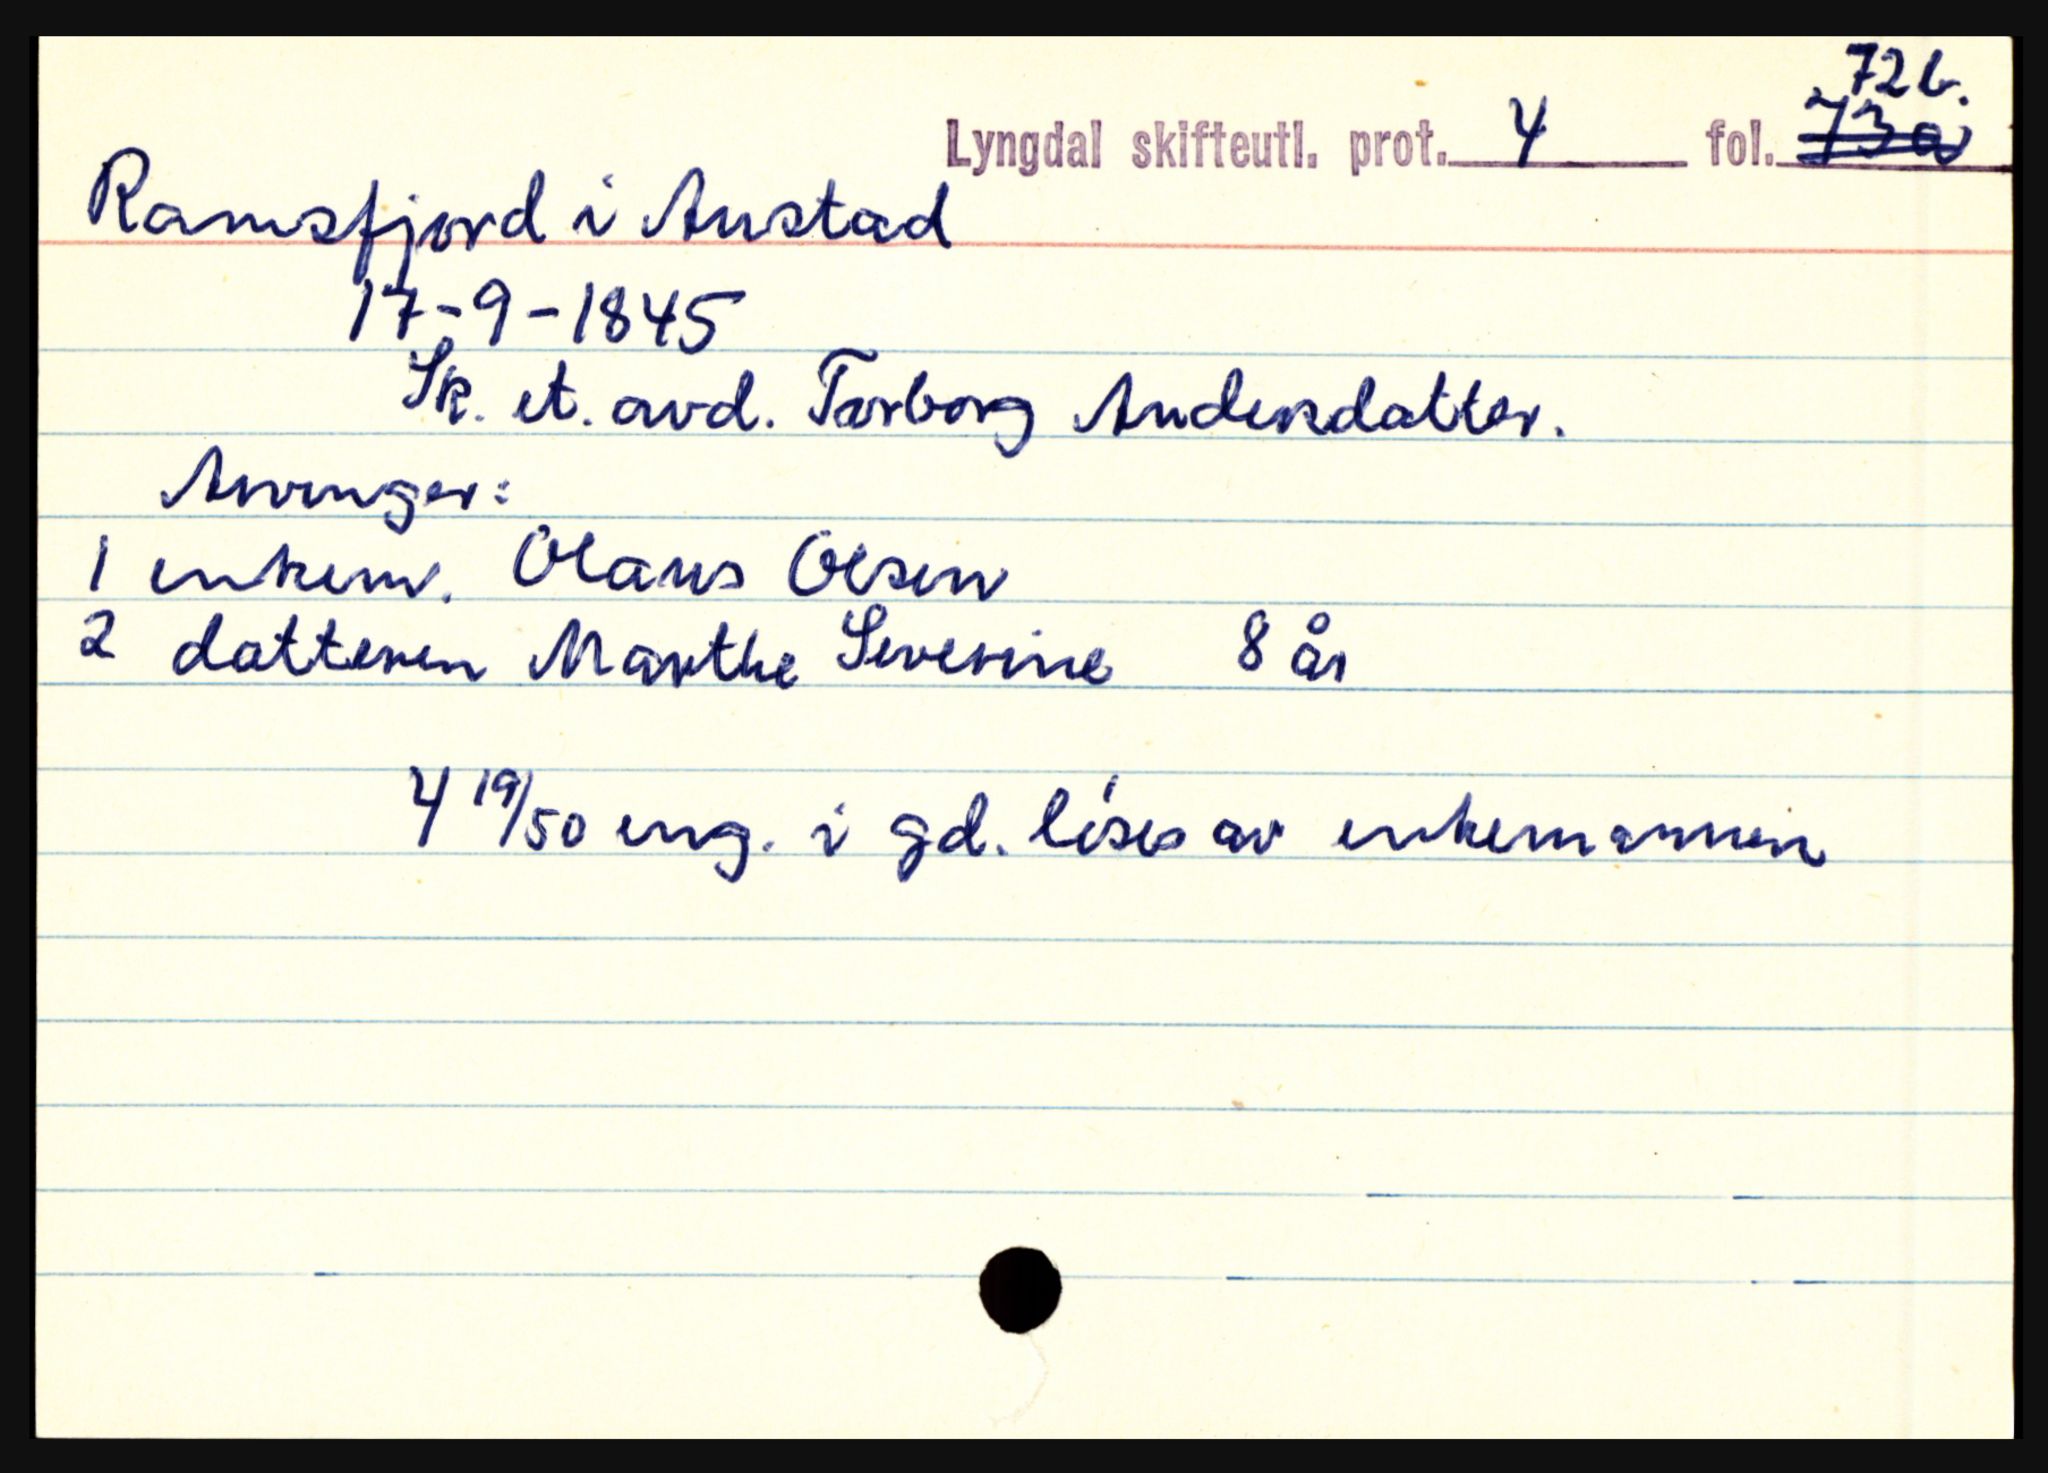 72b.
Lyngdal skifteutl. prot. 4 fol. 73a
Ramsfjord i Austad
17-9-1845
Sk. et. avd. Torborg Andersdatter.
Arvinger:
1 enkem. Olaus Olsen
2 datteren Marthe Severine 8 år
4 19/50 eng. i gd. löses av enkemannen